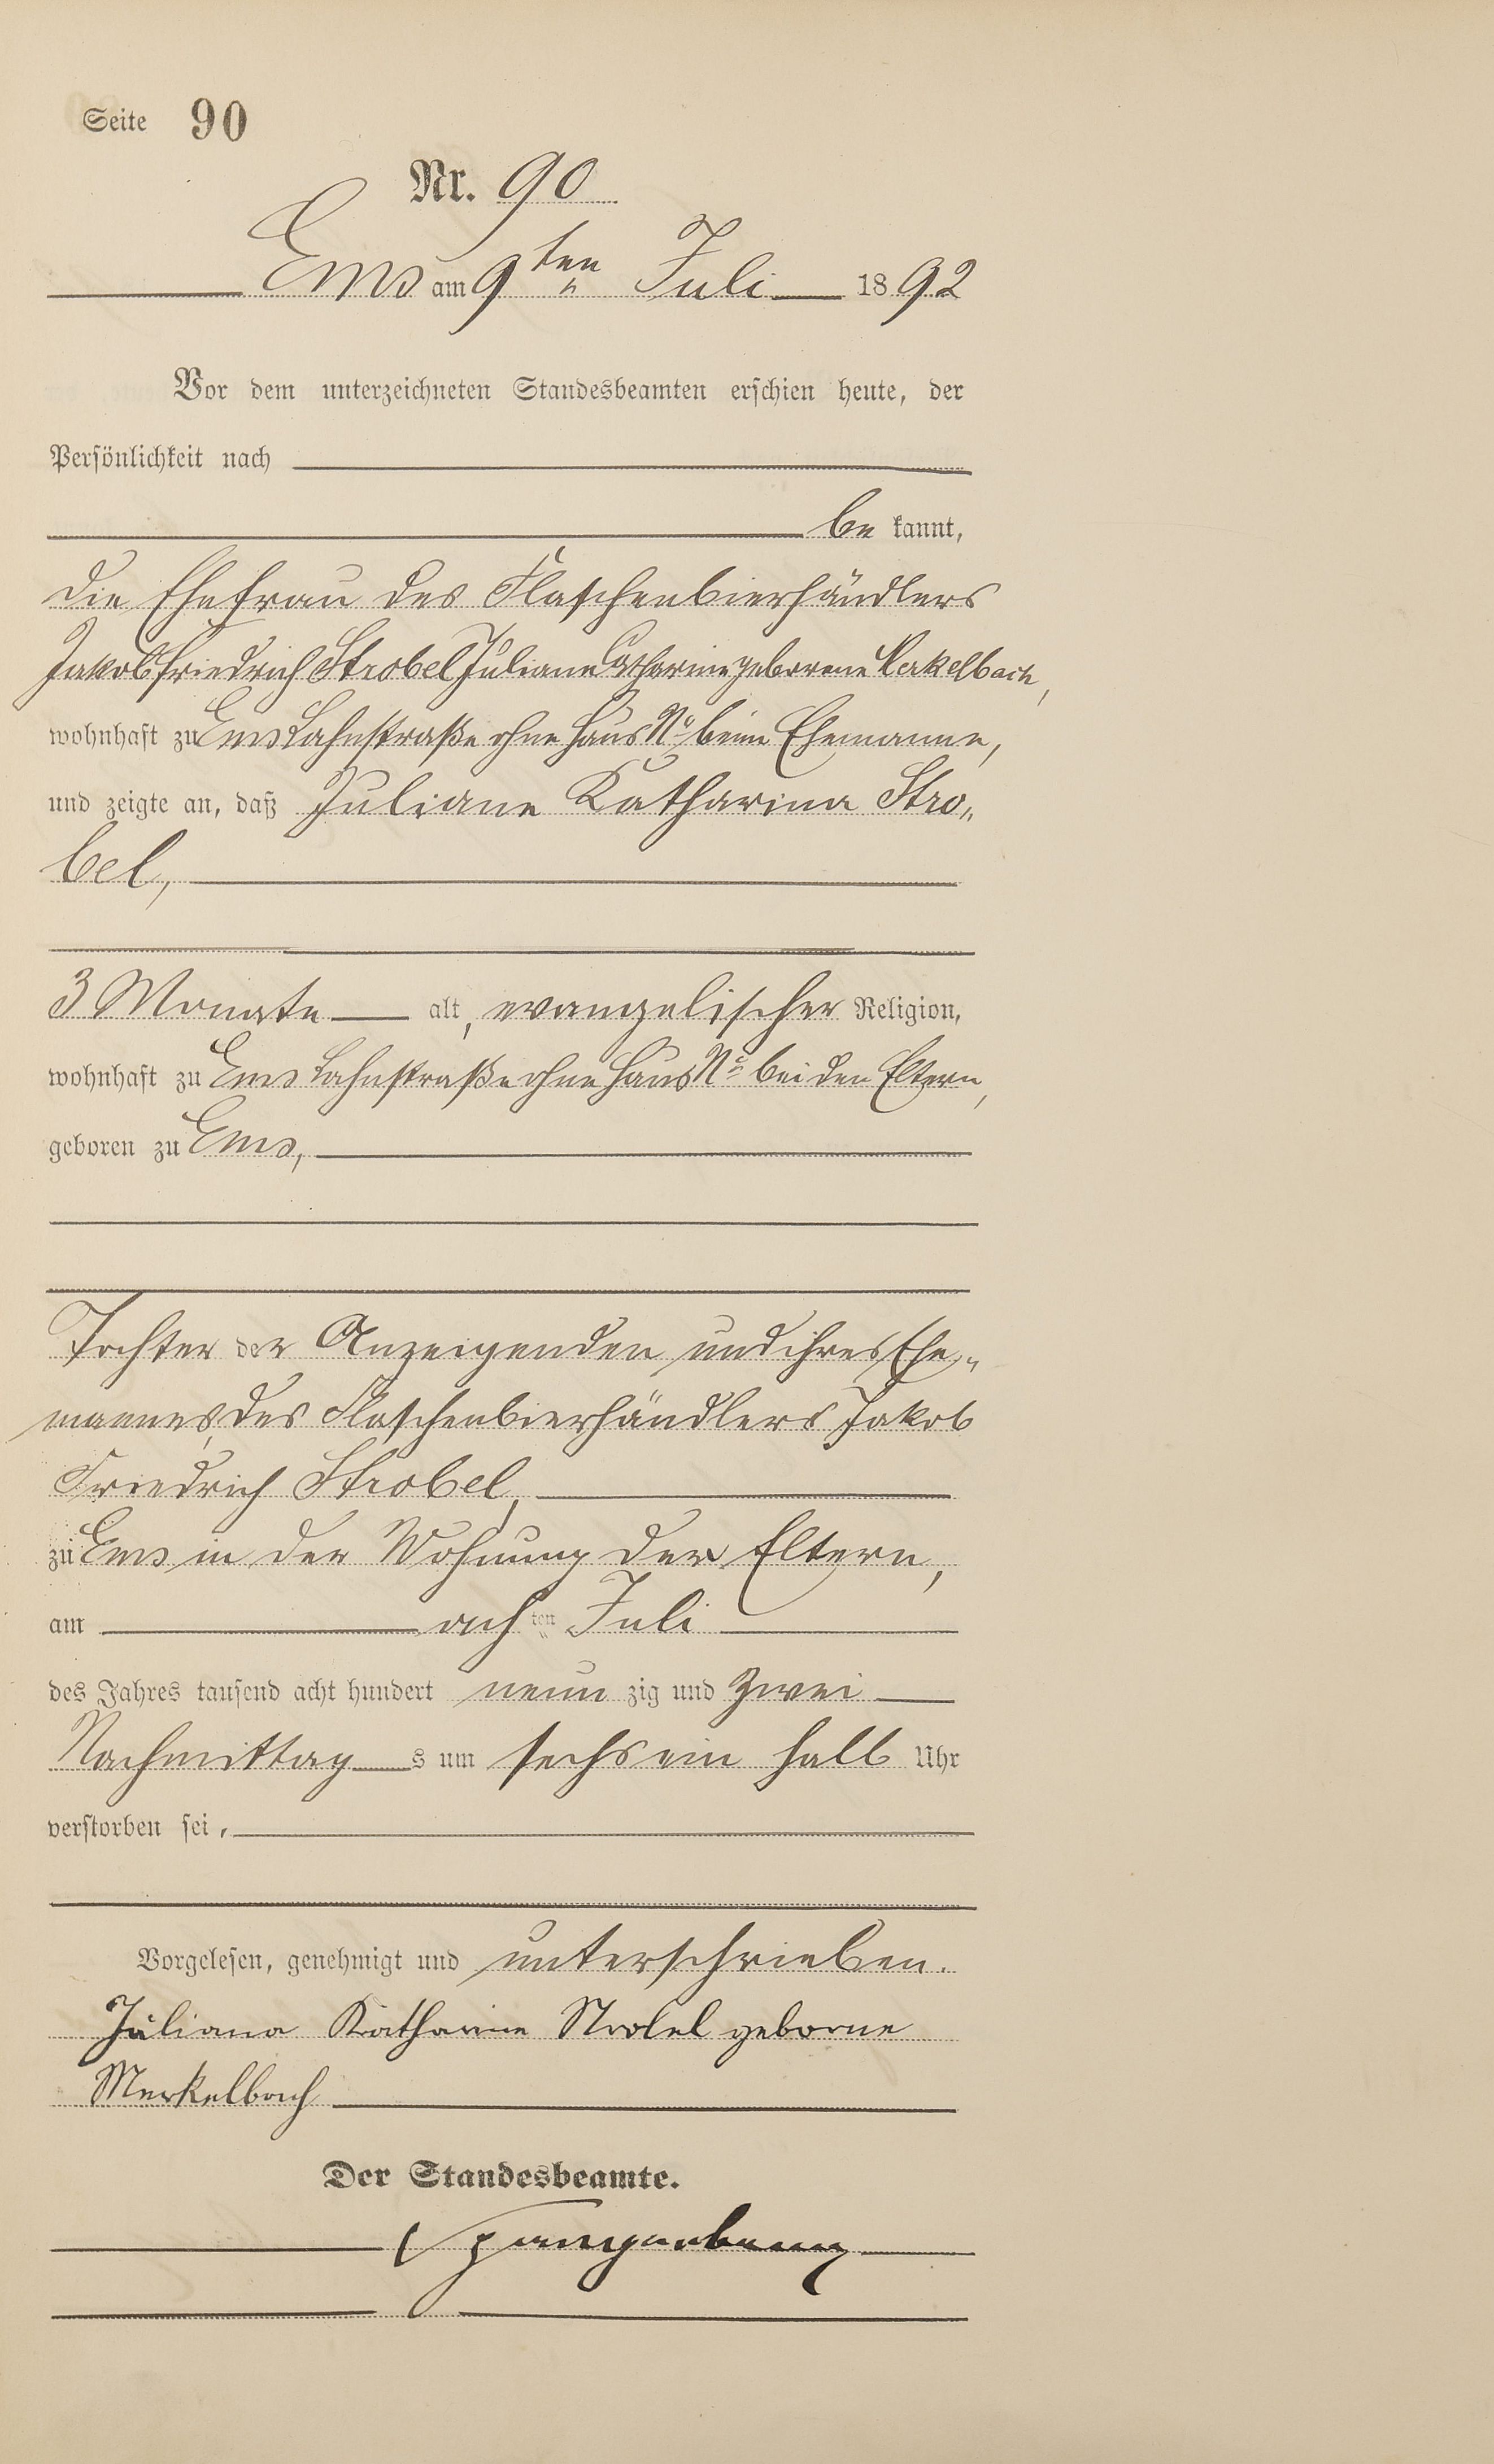 Seite 90
Nr. 90
Ems am 9ten Juli 1892
Vor dem unterzeichneten Standesbeamten erschien heute, der
Persönlichkeit nach
be kannt,
die Ehefrau des Flaschenbierhändlers
Jakob Friedrich Strobel Juliane Catharine geborene Merkelbach,
wohnhaft zu Ems Lahnstraße ohne Haus No beim Ehemanne,
und zeigte an, daß Juliane Katharina Stro„
bel,
3 Monate alt, evangelischer Religion,
wohnhaft zu Ems Lahnstraße ohne Haus No bei den Eltern,
geboren zu Ems,
Tochter der Anzeigenden und ihres Ehe„
mannes, des Flaschenbierhändlers Jakob
Friedrich Strobel,
zu Ems in der Wohnung der Eltern,
am achten Juli
des Jahres tausend acht hundert neun zig und zwei
Nachmittag s um sechs ein halb Uhr
verstorben sei,
Vorgelesen, genehmigt und unterschrieben.
Juliana Katharine Strobel geborne
Merkelbach
Der Standesbeamte.